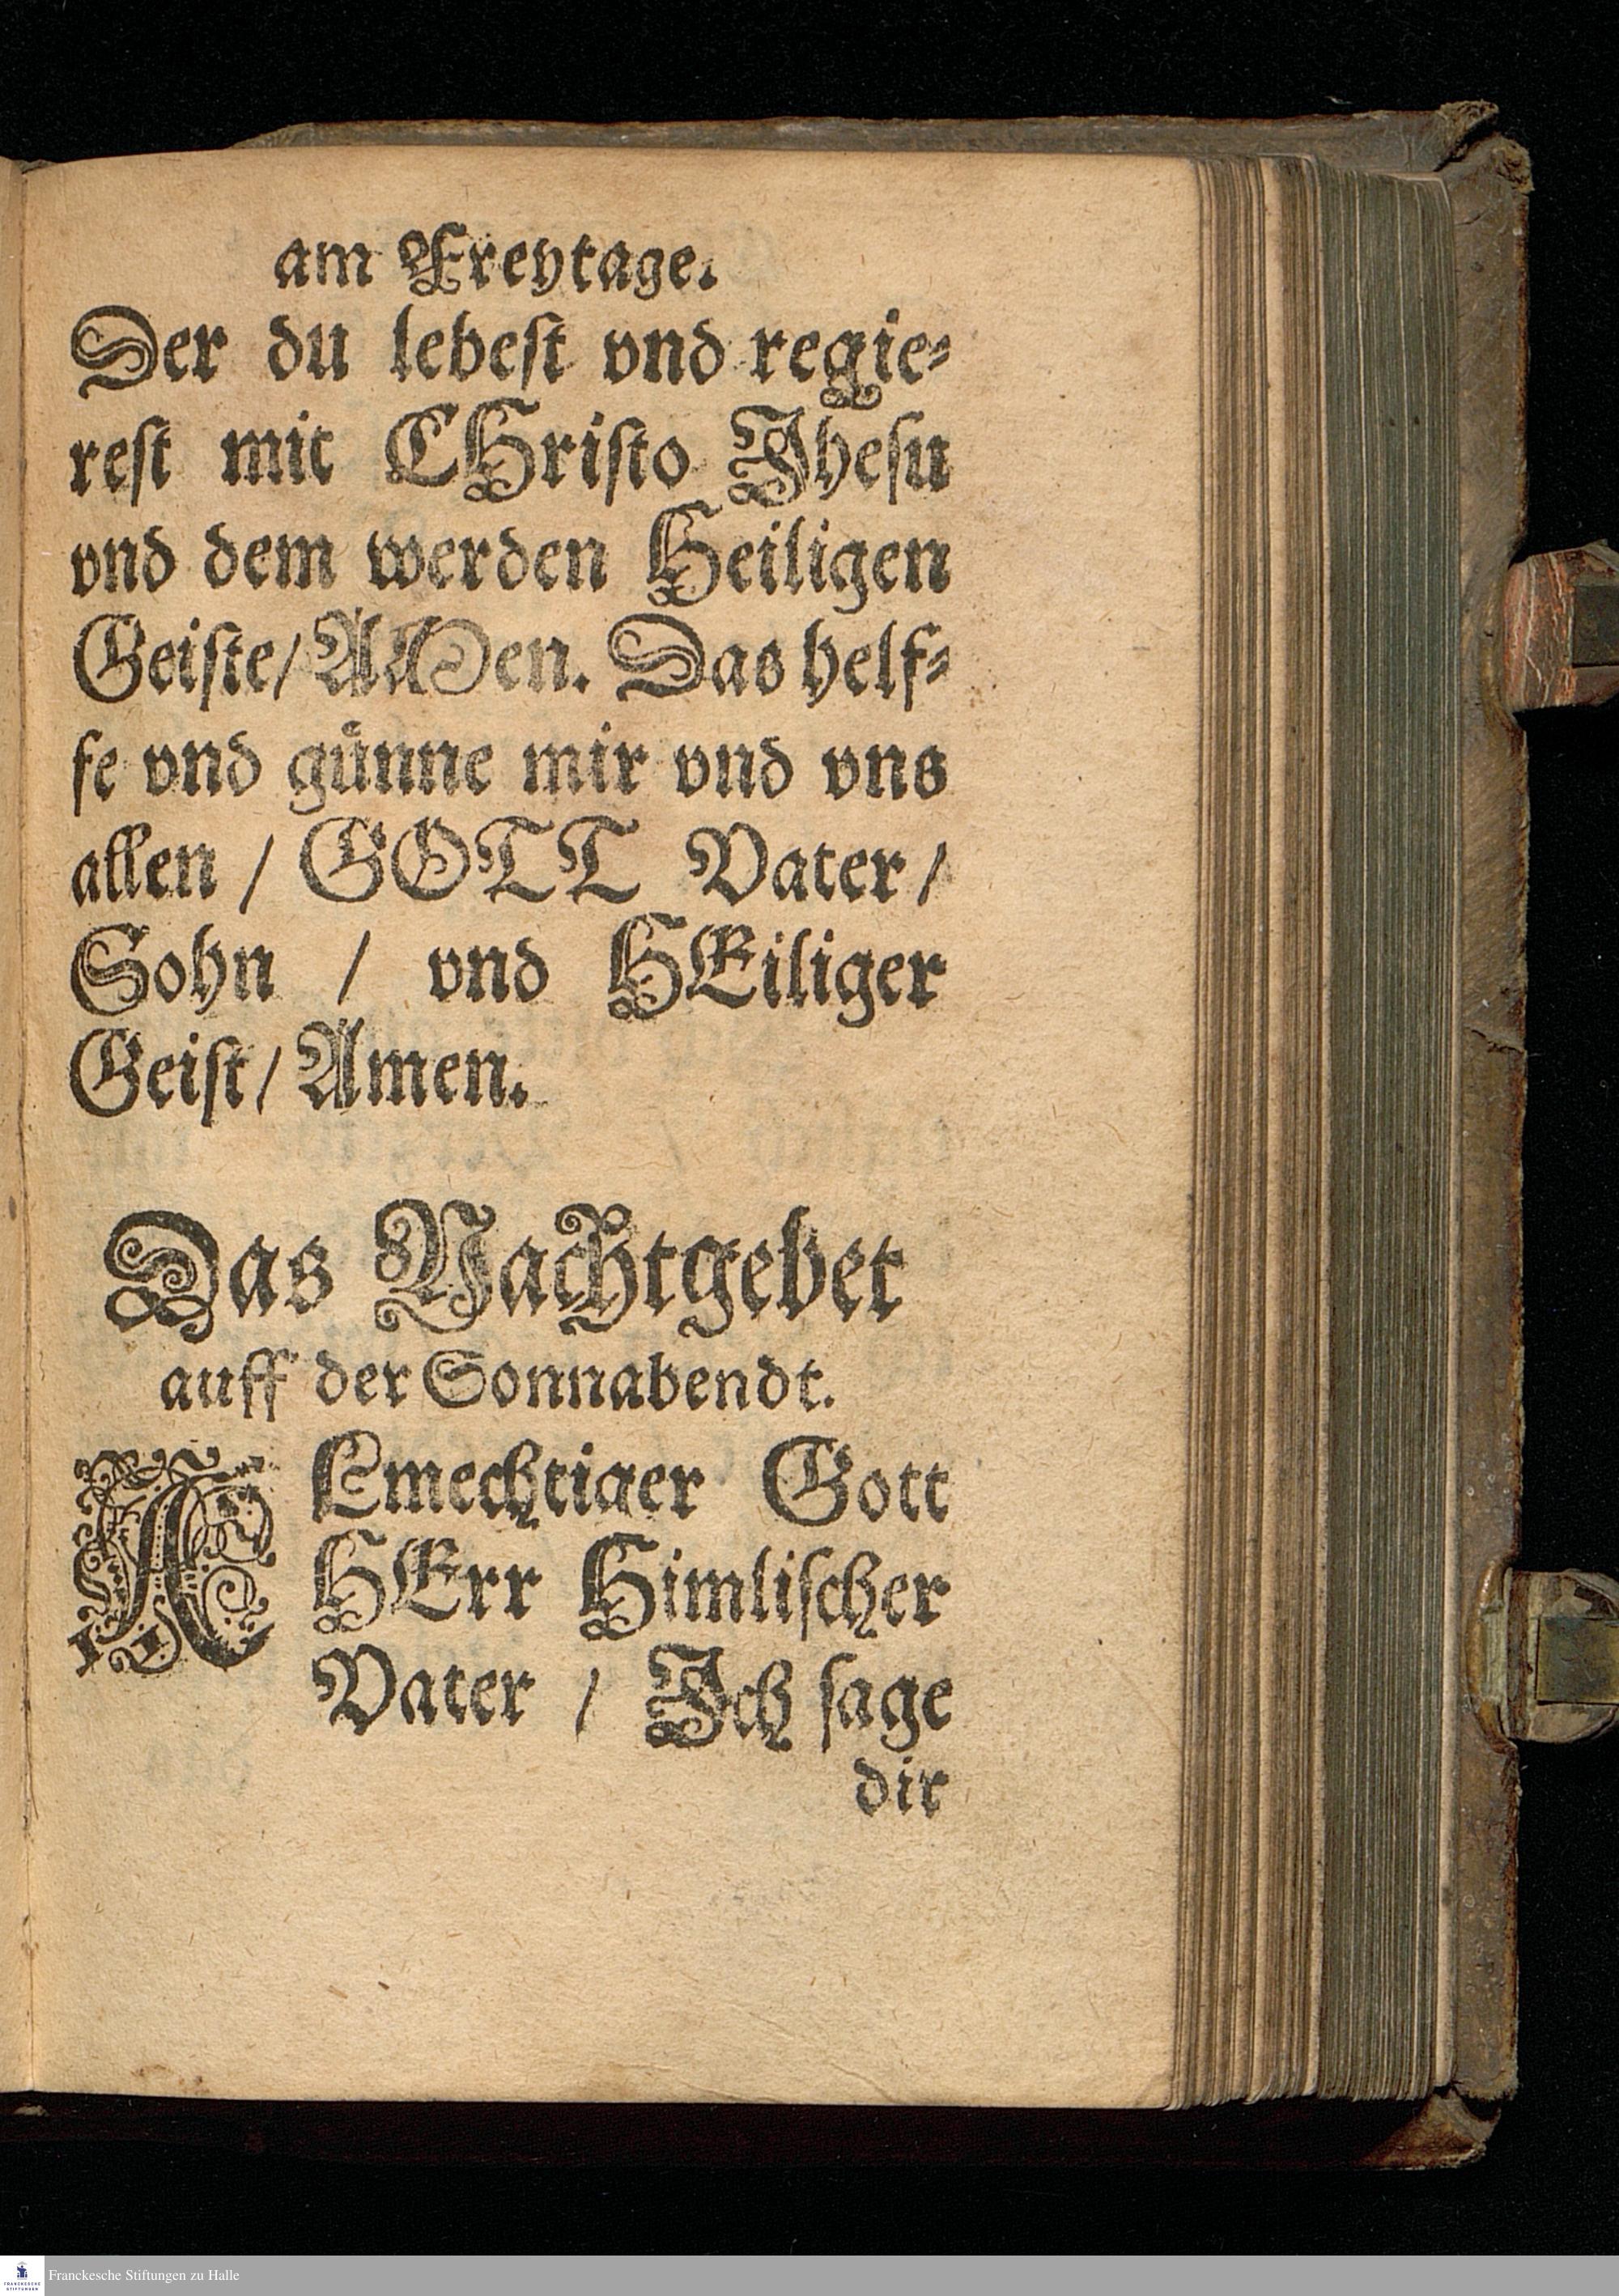 am Freytage.
Der du lebest vnd regie⸗
rest mit CHristo Jhesu
vnd dem werden Heiligen
Geiste/ AMen. Das helf⸗
fe vnd günne mir vnd vns
allen / GOTT Vater /
Sohn / vnd HEiliger
Geist/ Amen.
Das Nachtgebet
auff der Sonnabendt.
ALmechtiger Gott
HErr Himlischer
Vater / Ich sage
dir
Franckesche Stiftungen zu Halle
FRANCKESCHE
STIFTUNGEN